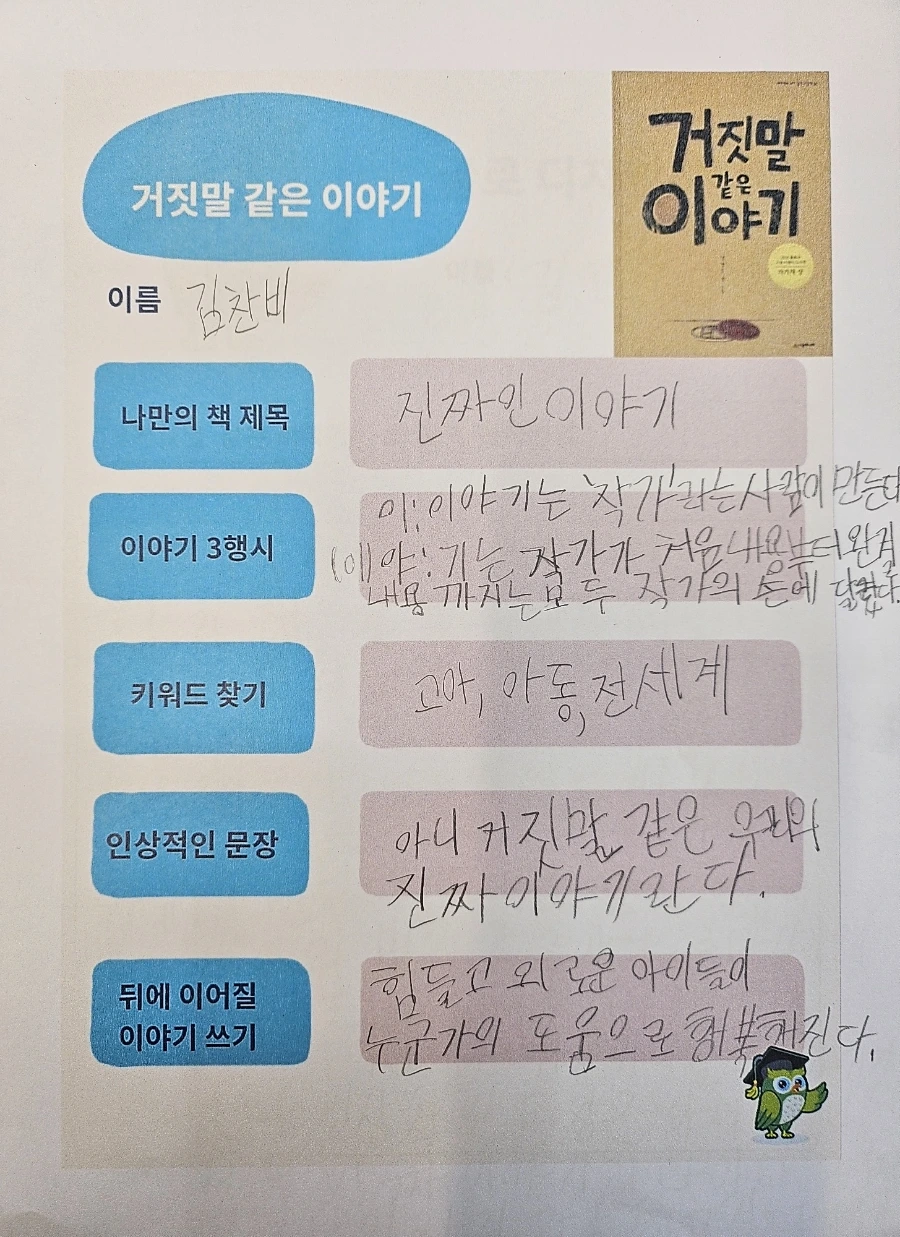 거짓말 같은 이야기
거짓말
같은
이야기
작가자 상
이름 김찬비
나만의 책 제목
진짜인 이야기
이야기 3행시
이:이야기는 '작가'라는 사람이 만든다
야: 기는 작가가 처음내용부터 완결
내용까지는 모두 작가의 손에 달렸다.
키워드 찾기
고아, 아동, 전세계
인상적인 문장
아니 거짓말 같은 우리의
진짜 이야기란다.
뒤에 이어질
이야기 쓰기
힘들고 외로운 아이들이
누군가의 도움으로 행복해진다.